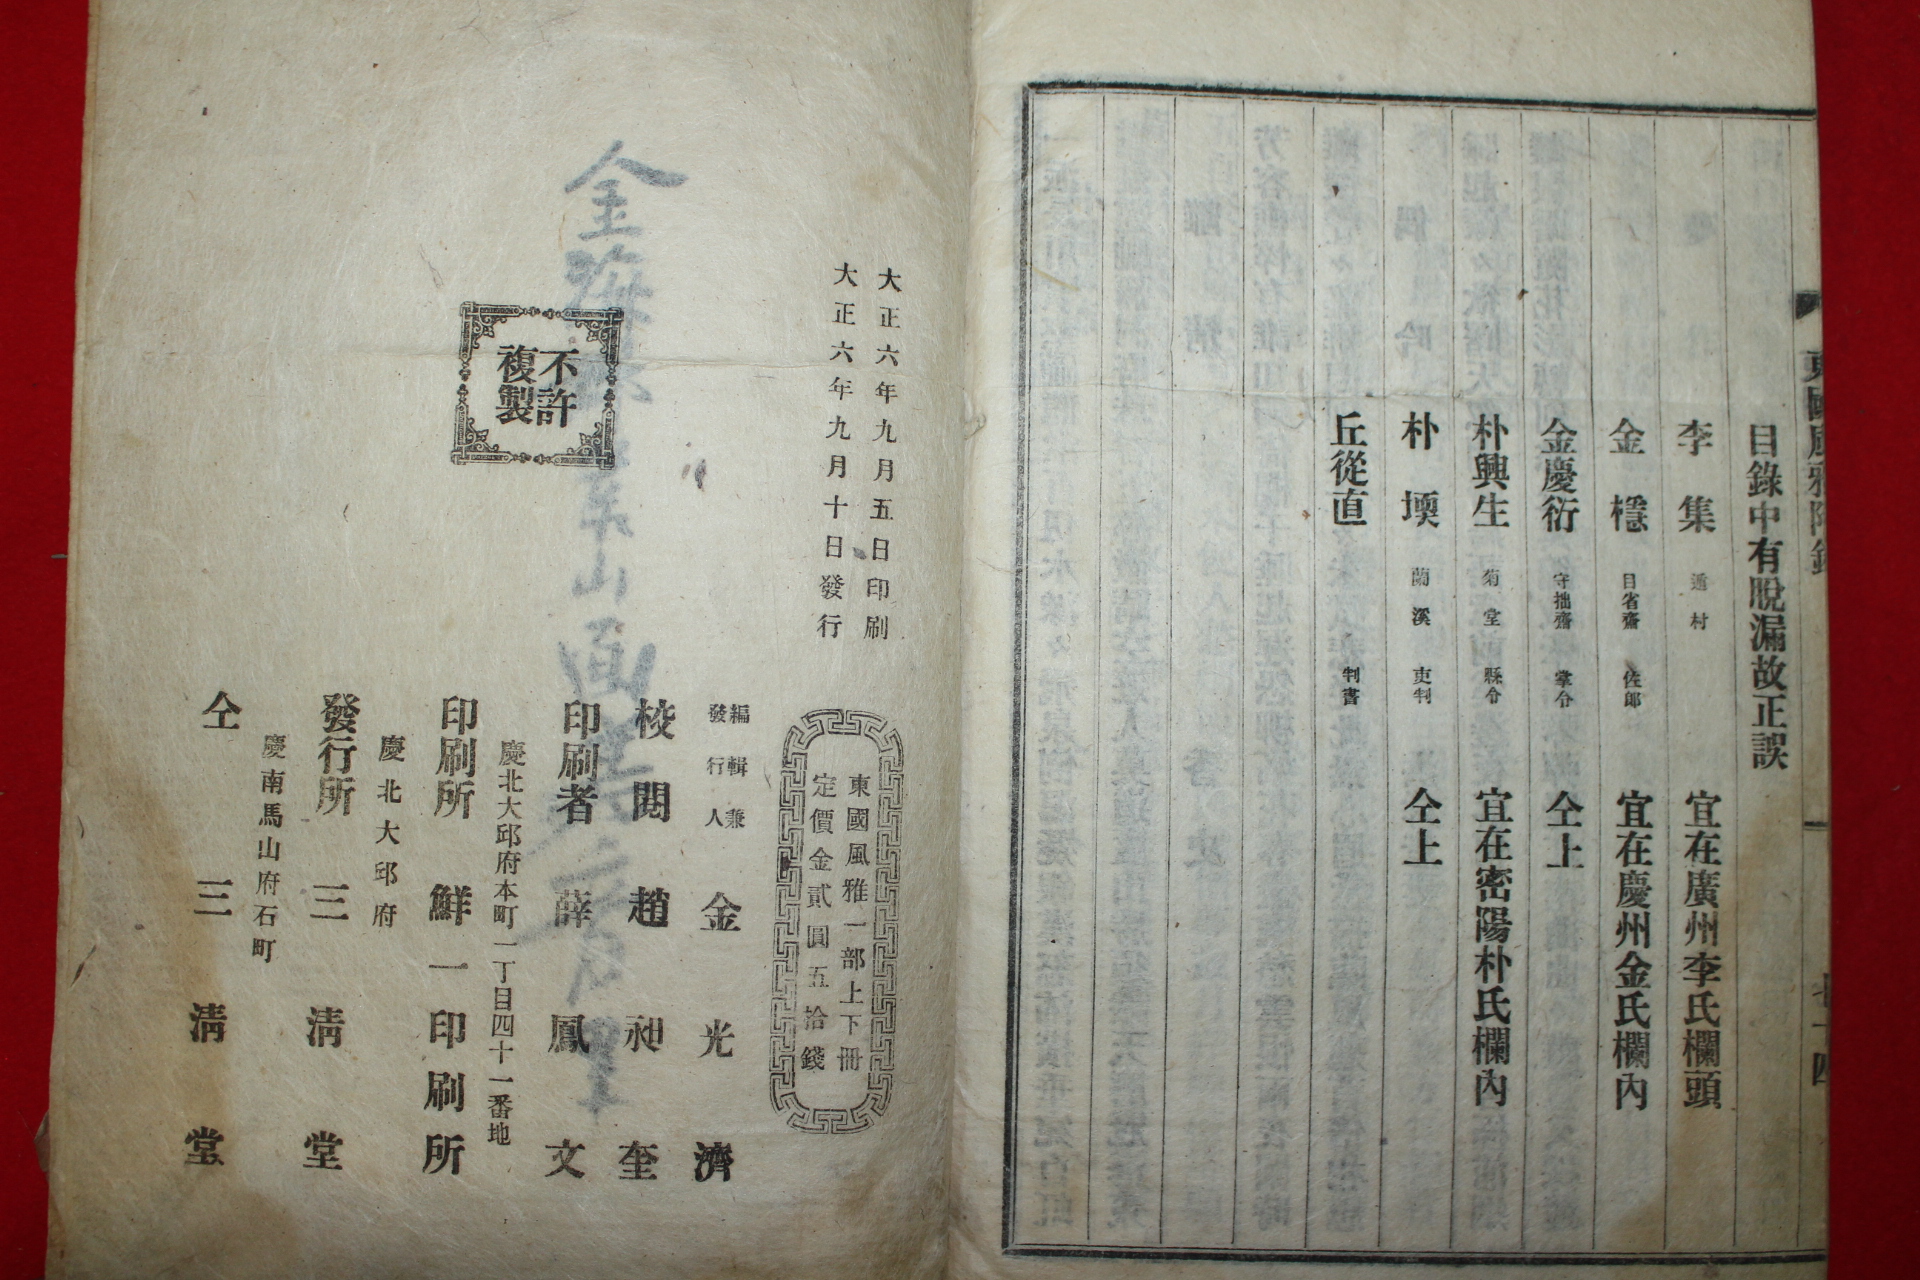 東國風雅附錄
目錄中有脫漏故正誤
李集 遁村 宜在廣州李氏欄頭
金穩 目省齋 佐郎 宜在慶州金氏欄內
金慶衍 守拙齋 掌令 仝上
朴興生 菊堂 縣令 宜在密陽朴氏欄內
朴堧 蘭溪 吏判 仝上
丘從直 判書
大正六年九月五日印刷
大正六年九月十日發行
不許複製
東國風雅一部上下冊
定價金貳圓五拾錢
編輯兼發行人 金光濟
校閱 趙昶奎
印刷者 薛鳳文
慶北大邱府本町一丁目四十一番地
印刷所 鮮一印刷所
慶北大邱府
發行所 三淸堂
慶南馬山府石町
仝 三淸堂